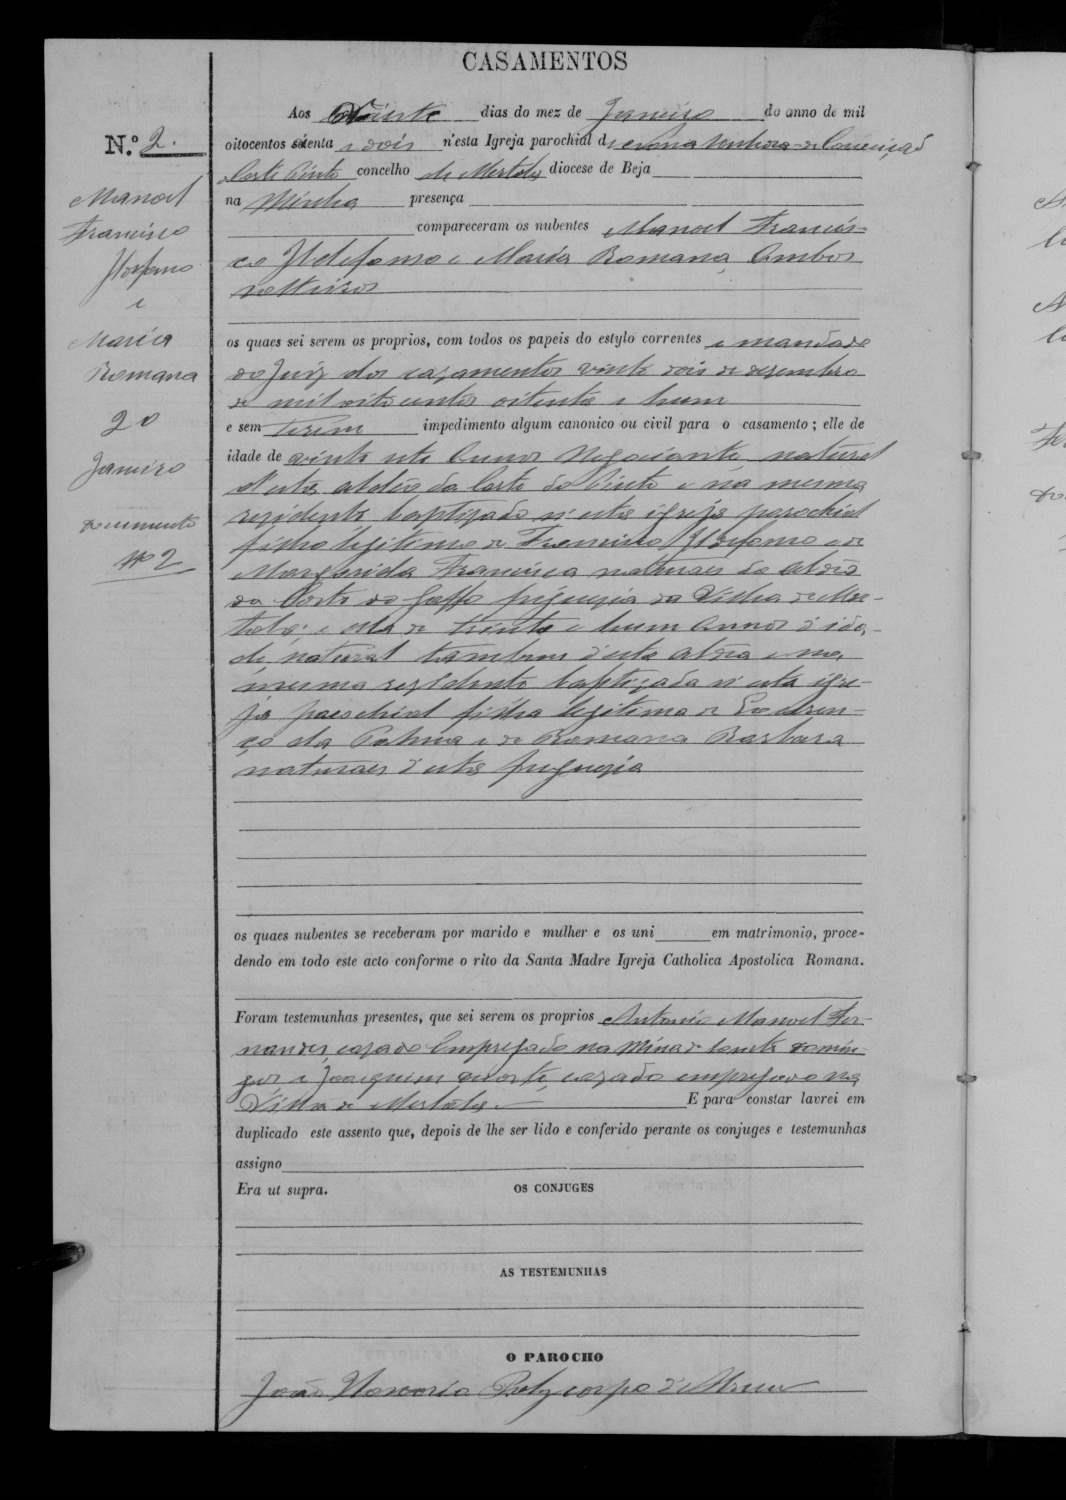 CASAMENTOS
N.º 2.
Manoel
Francisco
e
Maria
Romana
20
Janeiro
documento
Nº 2
Aos Vinte dias do mez de Janeiro do anno de mil
oitocentos oitenta e dois n'esta Igreja parochial de Nossa Senhora da Conceição
Corte Pinto concelho de Mertola diocese de Beja
na Minha presença
compareceram os nubentes Manoel Francis-
co Ildefonso e Maria Romana Ambos
solteiros
os quaes sei serem os proprios, com todos os papeis do estylo correntes e mandado
do Juiz dos cazamentos vinte dois de dezembro
de mil oito centos oitenta e hum
e sem terem impedimento algum canonico ou civil para o casamento; elle de
idade de vinte oito Annos Negociante, natural
d'esta aldeia da Corte do Pinto e na mesma
rezidente baptizado n'esta igreja parochial
filho legitimo de Francisco Ildefonso e de
Margarida Francisca naturaes da aldeia
da Corte do Gaffo freguezia da Villa de Mer-
tola; e ella de trinta e hum Annos d'ida-
de, natural tambem d'esta aldeia e na
mesma rezidente baptizada n'esta igre-
ja parochial filha legitima de Louren-
ço da Palma e de Romana Barbara
naturaes d'esta freguezia
os quaes nubentes se receberam por marido e mulher e os uni em matrimonio, proce-
dendo em todo este acto conforme o rito da Santa Madre Igreja Catholica Apostolica Romana.
Foram testemunhas presentes, que sei serem os proprios Antonio Manoel Fer-
nandes, cazado Empregado na Mina de Sancto Domin-
gos e Joaquim Duarte, cazado empregado na
Villa de Mertola E para constar lavrei em
duplicado este assento que, depois de lhe ser lido e conferido perante os conjuges e testemunhas
assigno
Era ut supra.
OS CONJUGES
AS TESTEMUNHAS
O PAROCHO
João Polycarpo d'Abreu